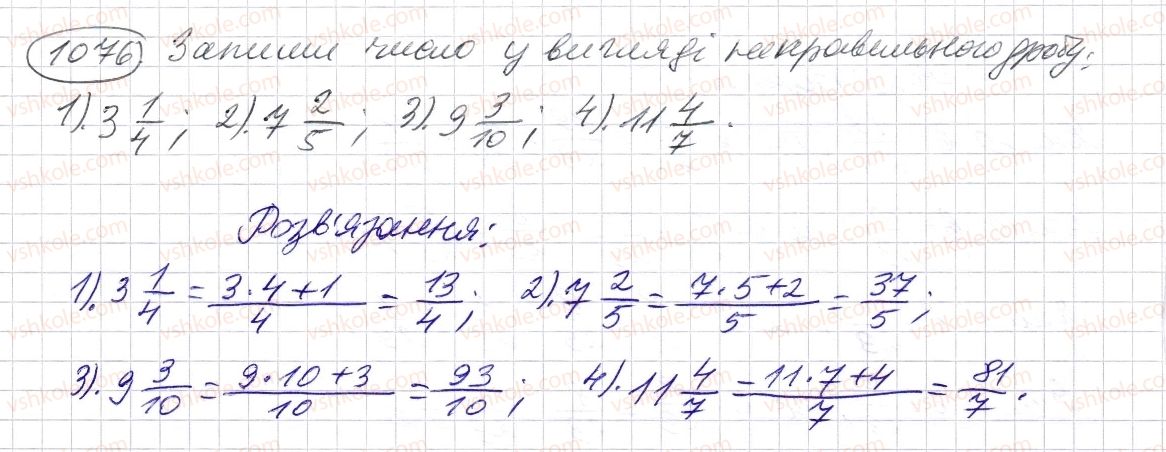 1076) Запиши число у вигляді неправильного дробу:
1). 3 1/4 ; 2). 7 2/5 ; 3). 9 3/10 ; 4). 11 4/7 .
Розв'язання:
1). 3 1/4 = (3·4+1)/4 = 13/4 ; 2). 7 2/5 = (7·5+2)/5 = 37/5 ;
3). 9 3/10 = (9·10+3)/10 = 93/10 ; 4). 11 4/7 = (11·7+4)/7 = 81/7 .